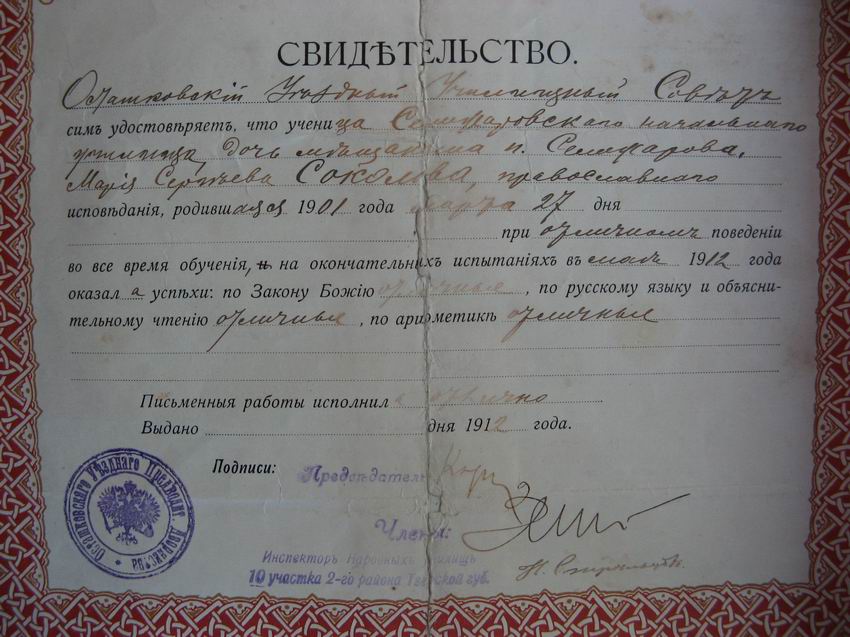 СВИДѢТЕЛЬСТВО.
Осташковскій Уѣздный Училищный Совѣтъ
симъ удостовѣряетъ, что ученица начальнаго
училища, дочь мѣщанина
Марія Сергѣева Соколова, православнаго
исповѣданія, родившаяся 1901 года марта 27 дня
при отличномъ поведеніи
во все время обученія, и на окончательныхъ испытаніяхъ въ маѣ 1912 года
оказала успѣхи: по Закону Божію отличные, по русскому языку и объясни-
тельному чтенію отличные, по ариѳметикѣ отличные
Письменныя работы исполнила отлично
Выдано дня 1912 года.
Подписи:
Предсѣдатель
Члены:
Инспекторъ Народныхъ Училищъ
10 участка 2-го района Тверской губ.
Осташковскаго Уѣзднаго Предводит. Дворянства